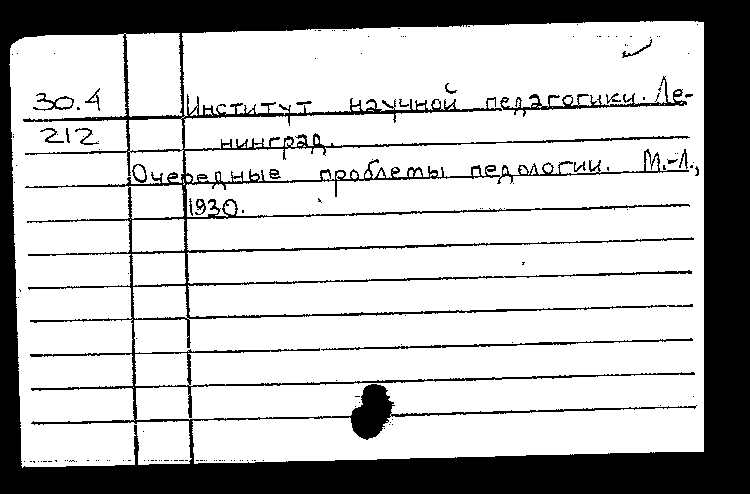 30.4 Институт научной педагогики. Ле-
212 нинград.
Очередные проблемы педологии. М.-Л.,
1930.